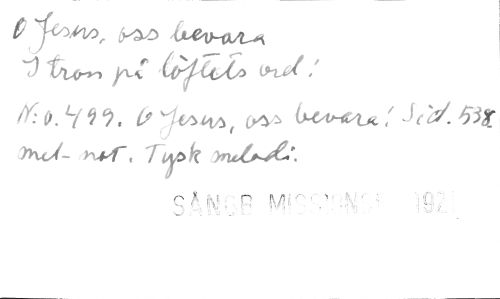 O Jesus, oss bevara
I tron på löftets ord!
N:o. 499. O Jesus, oss bevara! Sid. 538
met-not. Tysk melodi.
SÅNGB MISSIONSF 192